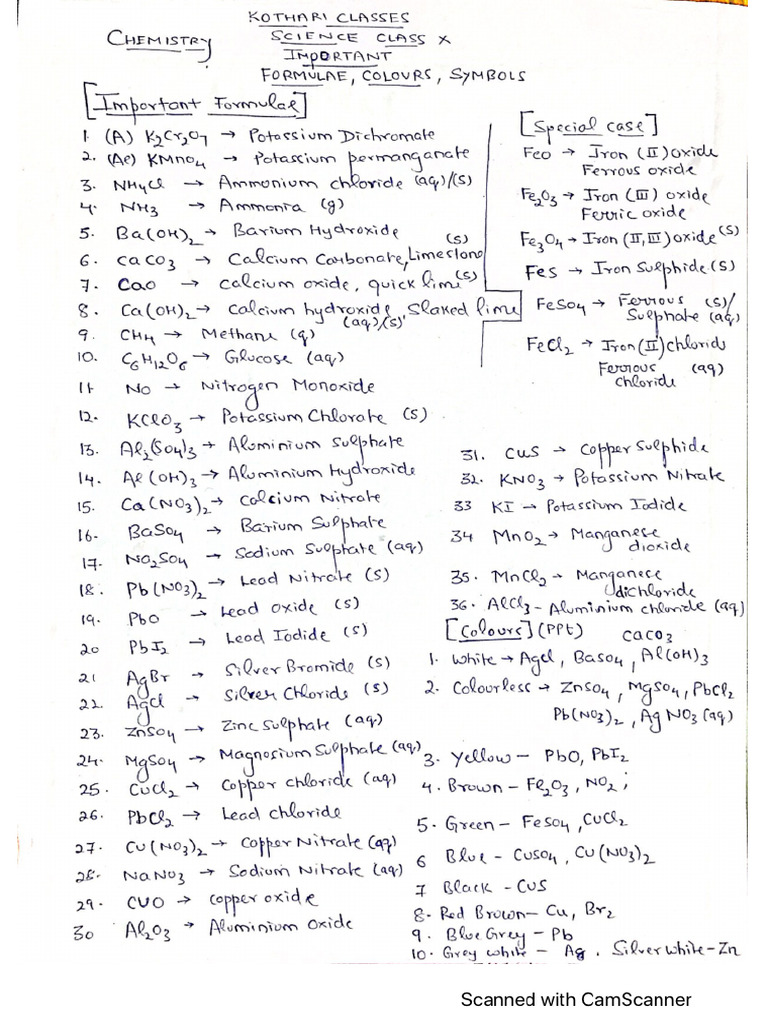 KOTHARI CLASSES
CHEMISTRY
SCIENCE CLASS X
IMPORTANT
FORMULAE, COLOURS, SYMBOLS
[Important Formulae]
1. (A) K2Cr2O7 → Potassium Dichromate
2. (Ae) KMnO4 → Potassium permanganate
3. NH4Cl → Ammonium chloride (aq)/(s)
4. NH3 → Ammonia (g)
5. Ba(OH)2 → Barium Hydroxide
6. CaCO3 → Calcium Carbonate, Limestone (s)
7. CaO → Calcium oxide, quick lime (s)
8. Ca(OH)2 → Calcium hydroxide, Slaked lime
(aq)/(s)
9. CH4 → Methane (g)
10. C6H12O6 → Glucose (aq)
11 NO → Nitrogen Monoxide
12. KClO3 → Potassium Chlorate (s)
13. Al2(SO4)3 → Aluminium Sulphate
14. Al(OH)3 → Aluminium Hydroxide
15. Ca(NO3)2 → Calcium Nitrate
16. BaSO4 → Barium Sulphate
17. NO2SO4 → Sodium Sulphate (aq)
18. Pb(NO3)2 → Lead Nitrate (s)
19. PbO → Lead Oxide (s)
20 PbI2 → Lead Iodide (s)
21 AgBr → Silver Bromide (s)
22. AgCl → Silver Chloride (s)
23. ZnSO4 → Zinc Sulphate (aq)
24. MgSO4 → Magnesium Sulphate (aq)
25. CuCl2 → Copper chloride (aq)
26. PbCl2 → Lead chloride
27. Cu(NO3)2 → Copper Nitrate (aq)
28. NaNO3 → Sodium Nitrate (aq)
29. CUO → Copper oxide
30 Al2O3 → Aluminium Oxide
[Special case]
FeO → Iron (II) oxide
Ferrous oxide
Fe2O3 → Iron (III) oxide
Ferric oxide
Fe3O4 → Iron (II, III) oxide (s)
FeS → Iron Sulphide (s)
FeSO4 → Ferrous (s)/
Sulphate (aq)
FeCl2 → Iron (II) chloride
Ferrous (aq)
chloride
31. CUS → Copper Sulphide
32. KNO3 → Potassium Nitrate
33 KI → Potassium Iodide
34 MnO2 → Manganese
dioxide
35. MnCl2 → Manganese
dichloride
36. AlCl3 - Aluminium chloride (aq)
[Colours] (PPt)
CaCO3
1. White → AgCl, BaSO4, Al(OH)3
2. Colourless → ZnSO4, MgSO4, PbCl2
Pb(NO3)2, AgNO3 (aq)
3. Yellow - PbO, PbI2
4. Brown - Fe2O3, NO2;
5. Green - FeSO4, CuCl2
6 Blue - CuSO4, Cu(NO3)2
7 Black - CUS
8. Red Brown - Cu, Br2
9. Blue Grey - Pb
10. Grey white - Ag. Silver White - Zn
Scanned with CamScanner